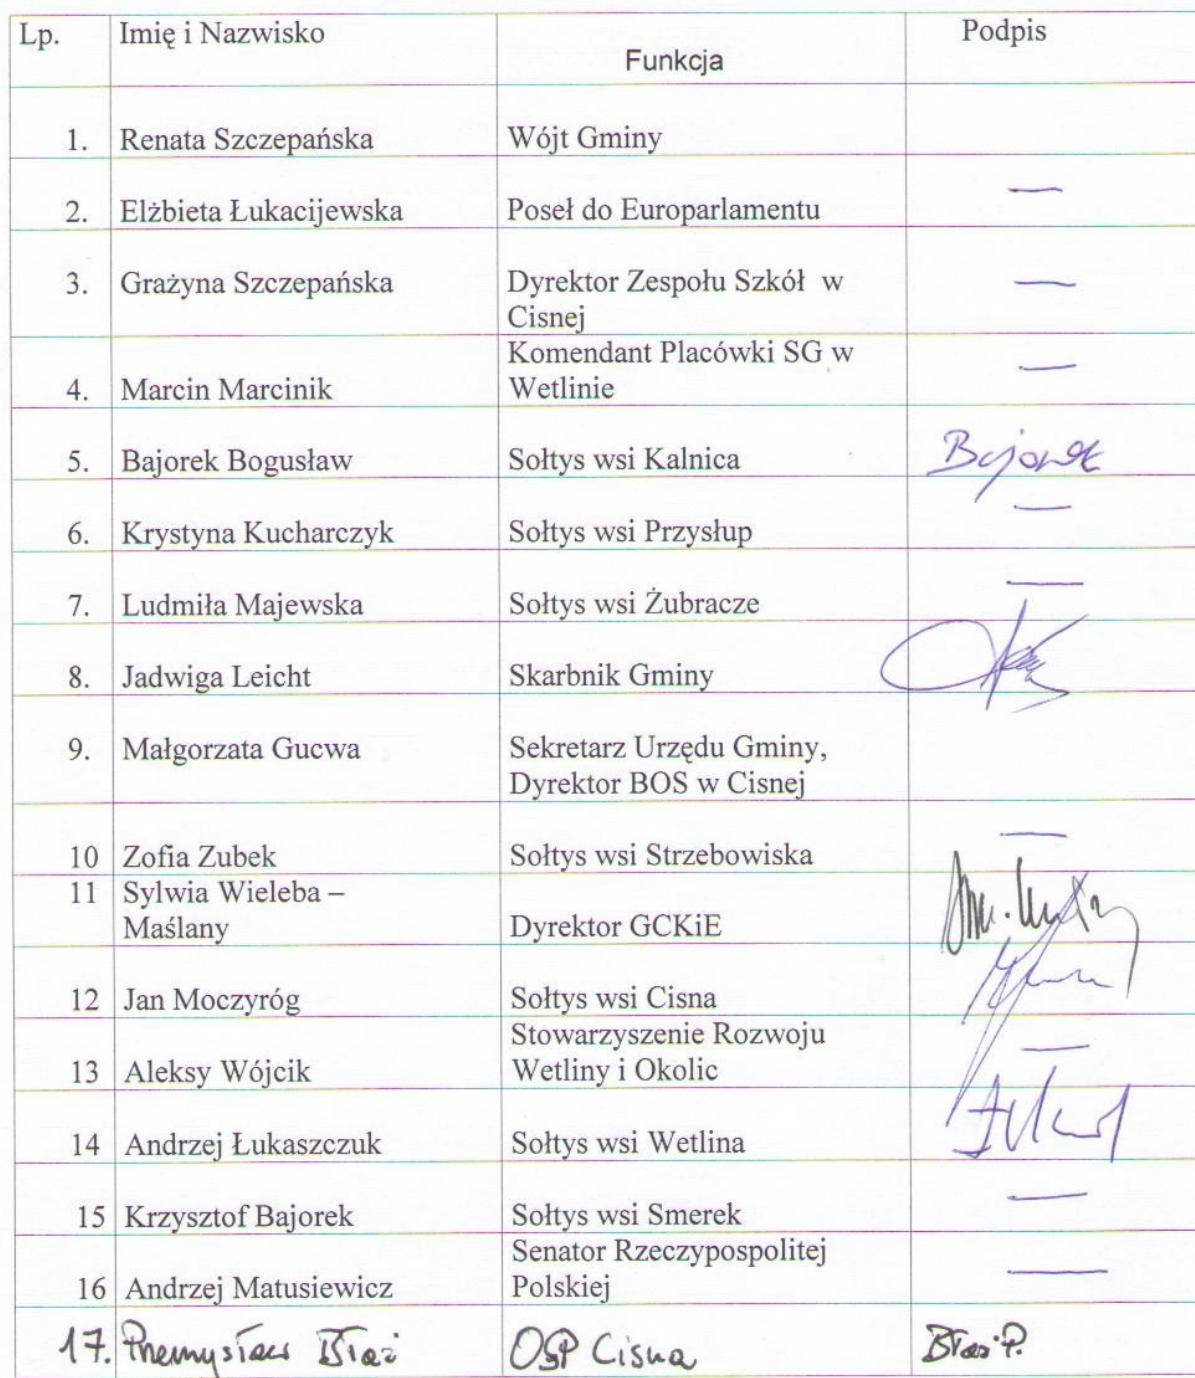 Lp. Imię i Nazwisko Funkcja Podpis
1. Renata Szczepańska Wójt Gminy
2. Elżbieta Łukacijewska Poseł do Europarlamentu —
3. Grażyna Szczepańska Dyrektor Zespołu Szkół w —
Cisnej
Komendant Placówki SG w
4. Marcin Marcinik Wetlinie —
5. Bajorek Bogusław Sołtys wsi Kalnica Bajorek
6. Krystyna Kucharczyk Sołtys wsi Przysłup —
7. Ludmiła Majewska Sołtys wsi Żubracze —
8. Jadwiga Leicht Skarbnik Gminy
9. Małgorzata Gucwa Sekretarz Urzędu Gminy,
Dyrektor BOS w Cisnej
10 Zofia Zubek Sołtys wsi Strzebowiska —
11 Sylwia Wieleba –
Maślany Dyrektor GCKiE
12 Jan Moczyróg Sołtys wsi Cisna
Stowarzyszenie Rozwoju
13 Aleksy Wójcik Wetliny i Okolic —
14 Andrzej Łukaszczuk Sołtys wsi Wetlina
15 Krzysztof Bajorek Sołtys wsi Smerek —
Senator Rzeczypospolitej
16 Andrzej Matusiewicz Polskiej —
17. Przemysław Błaż OSP Cisna Błaż P.